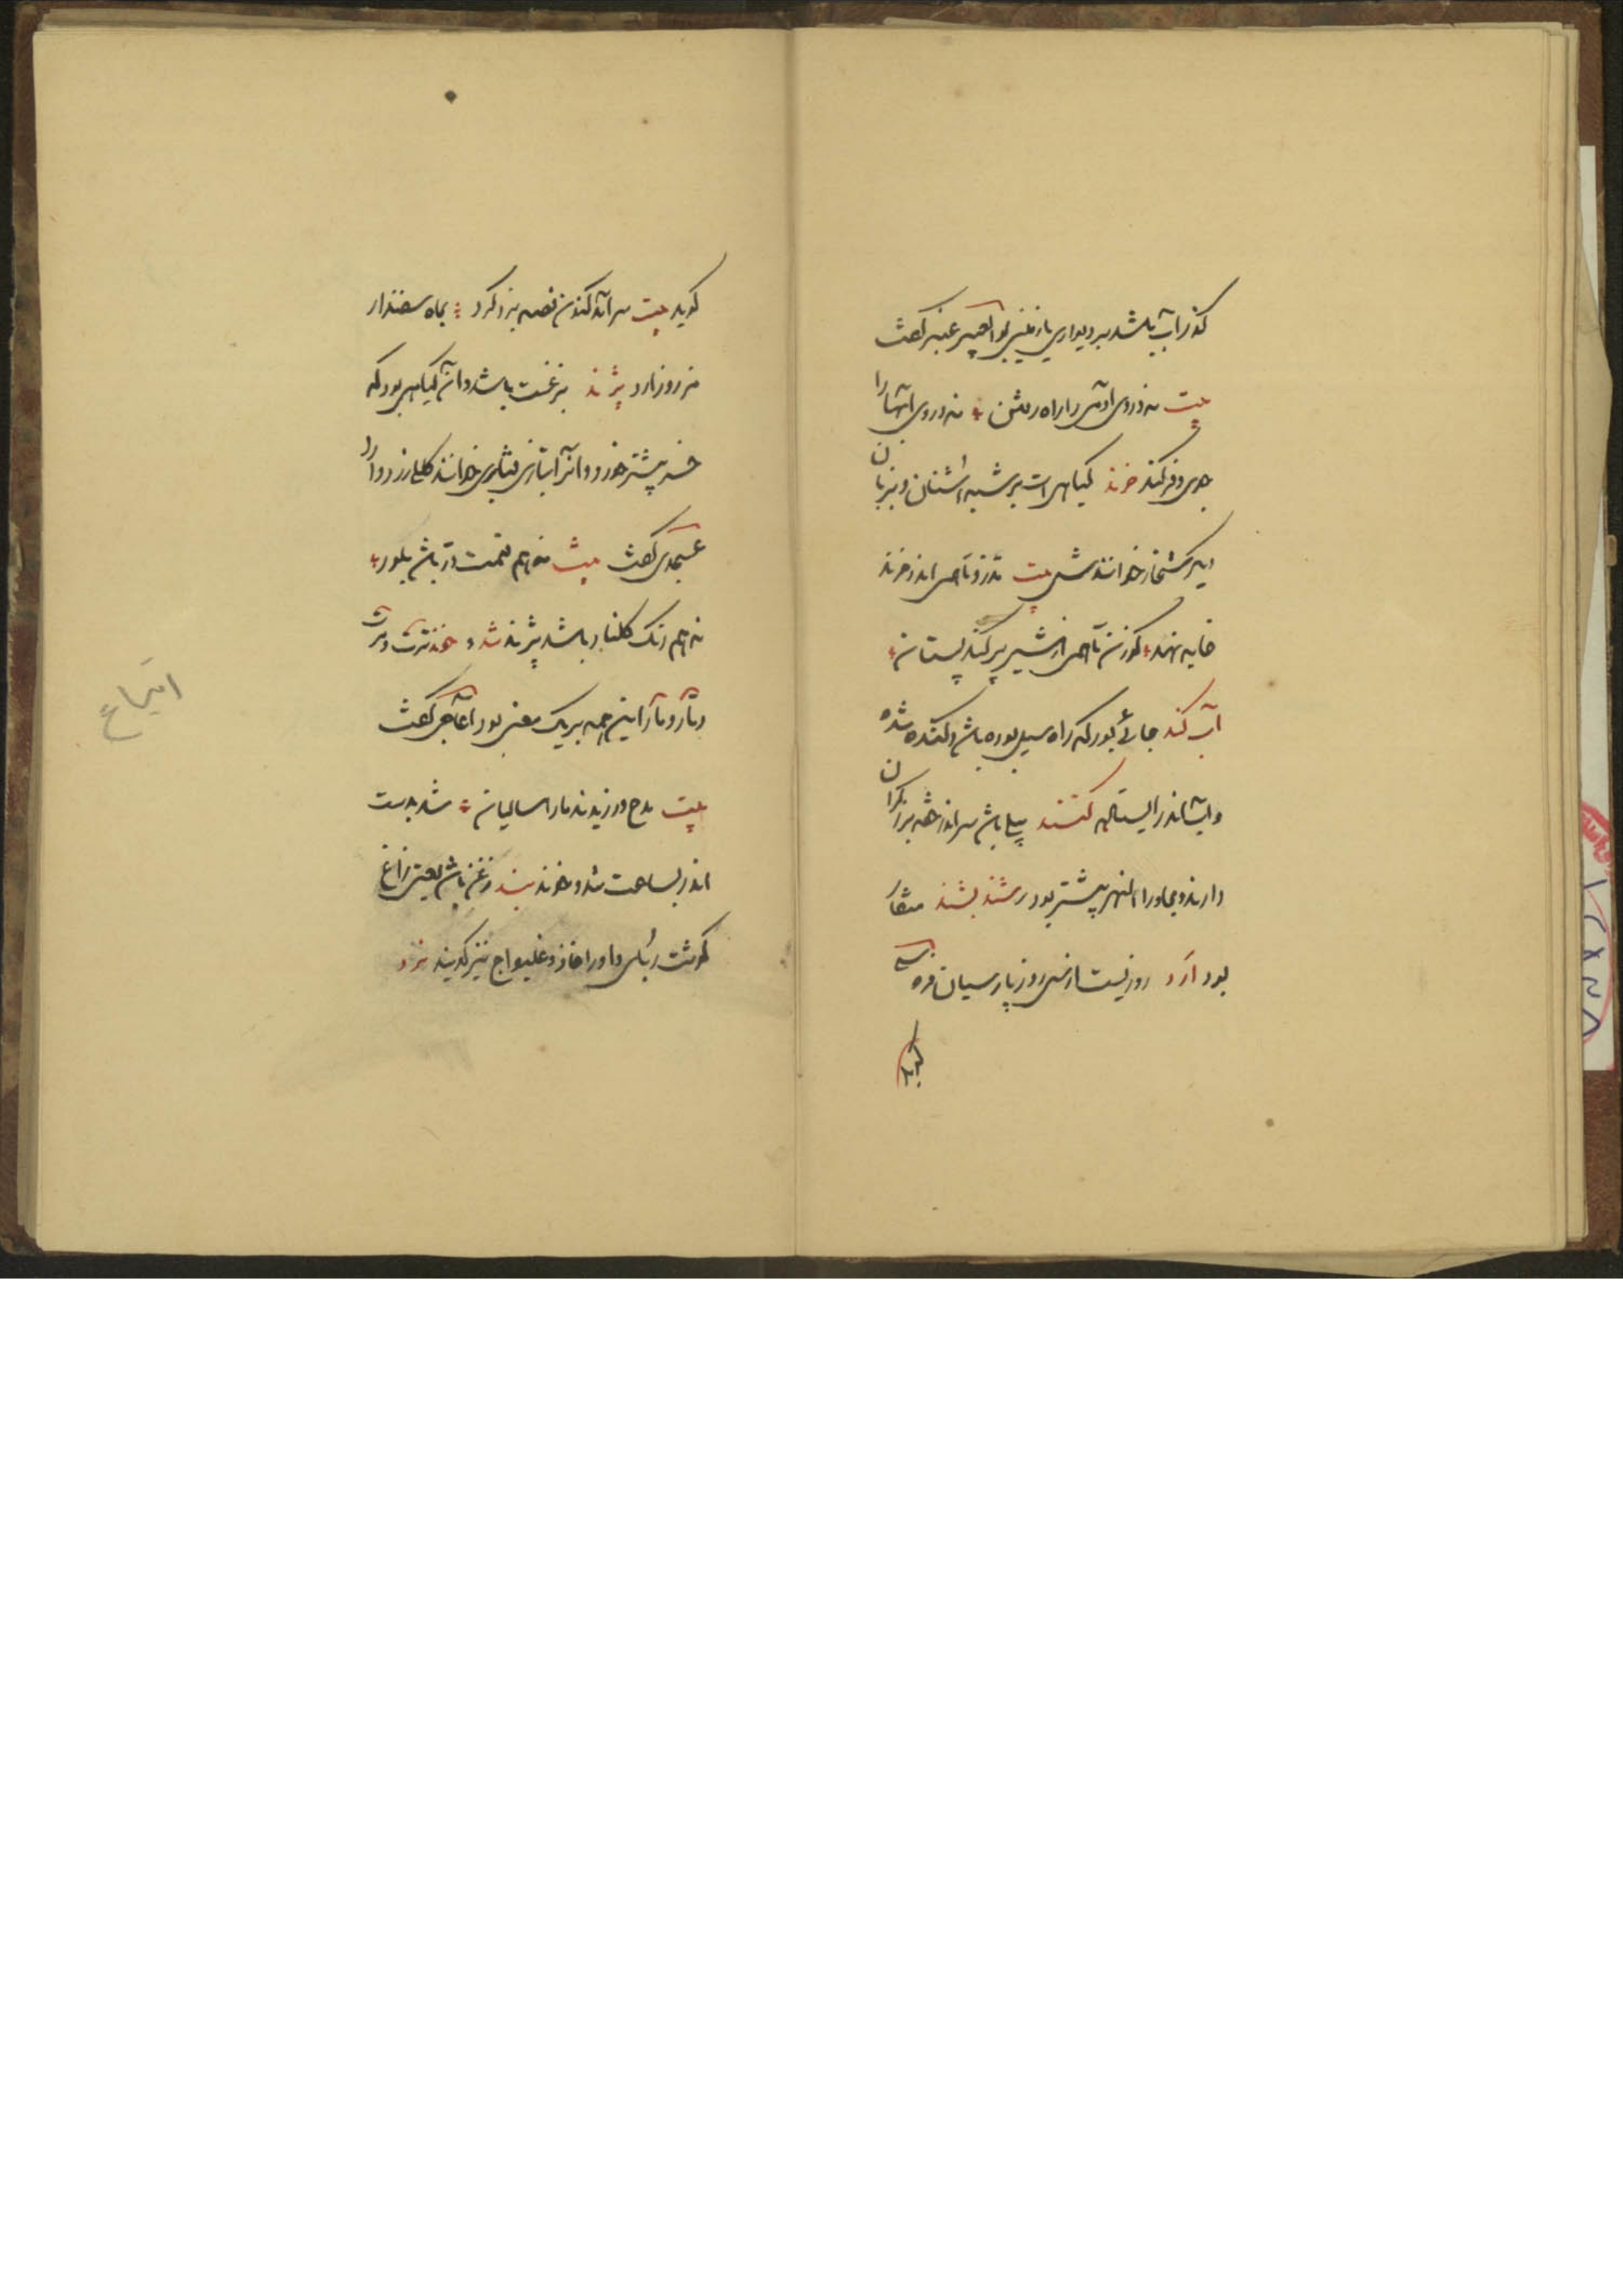 گذر آب باشد بر دیواری یا زمینی بوالعبیر عنبر گفت
بیت نه در وی آدمی را راه رفتن نه در وی آبها را
جوی و فرکند خرند گیاهی است بر شبه اشنان و بزبان
دیگر شخار خوانندش بیت تذرو تا همی اندر خرند
خایه نهد گوزن تا همی از شیر پر کند پستان
آب کند جائی بود که راه سیل بوده باش و کنده شده
و آبش اندر ایستاده کنند بیل باش سر اندر خمیده برزگران
دارند و بماوراءالنهر بیشتر بود شند بشند منقار
بود ارد روزیست از سی روز پارسیان فردوسی
گوید
گوید بیت سر آمد کنون قصه یزدگرد بماه سفندار
مز روز ارد پژند برغست باشد و آن گیاهی بود که
خر بیشتر خورد و آنرا بتازی قثابری خوانند گلی زرد دارد
عسجدی گفت بیت نه هم قیمت در باش بلور
نه هم رنگ گلنار باشد پژند شد و خوند ترت و مرت
و تار و مار این همه بریک معنی بود آغاجی گفت
بیت مدح ورزیدند مار سالیان شد بدست
اندر بساعت شد و خوند بند زغن باش یعنی زاغ
گوشت ربای و او را خاد و غلیواج نیز گویند نرد